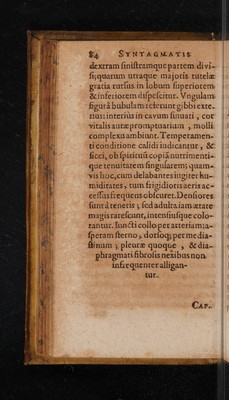 84 SYNTAGMATIS
dextram sinistramque partem divi-
si; quarum utraque majoris tutelæ
gratia rursus in lobum superiorem
& inferiorem dispescitur. Vngulam
figurâ bubulam referunt gibbi exte-
nus: interius in cavum sinuati, cor
vitalis auræ promptuarium, molli
complexu ambiunt. Temperamen-
ti conditione calidi iudicantur, &
sicci, ob spirituũ copiã nutrimenti-
que tenuitatem singularem; quam-
vis hoc, cum delabantes iugiter hu-
miditates, tum frigidioris aeris ac-
cessus frequens obscuret. Densiores
sunt à teneris; sed adulta iam ætate
magis rarescunt, intensiusque colo-
rantur. Iuncti collo per arteriam a-
speram sterno, dorsoq; per media-
stinum; pleuræ quoque, & dia-
phragmati fibrosis nexibus non
infrequenter alligan-
tur.
CAP.